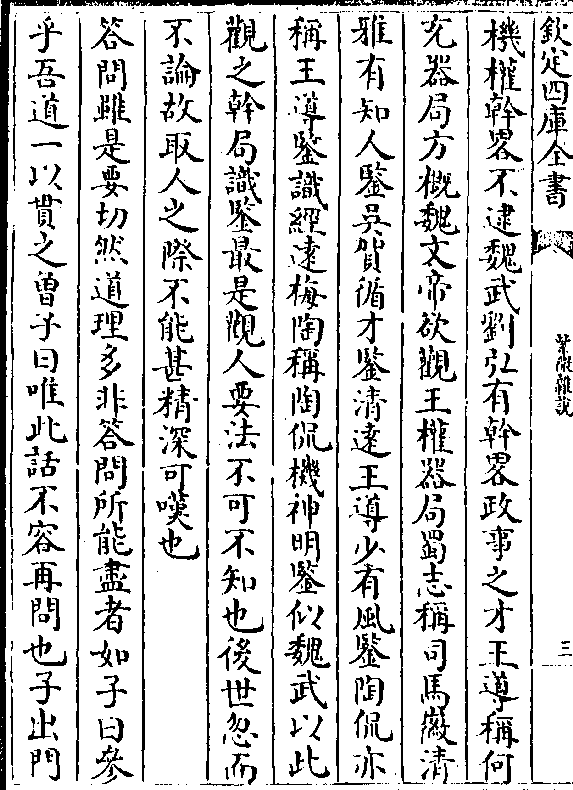 欽定四庫全書
紫微雜說
三
機權幹畧不逮魏武劉弘有幹畧政事之才王導稱何
充器局方概魏文帝欲觀王權器局蜀志稱司馬徽清
雅有知人鑒吳賀循才鑒清遠王導少有風鑒陶侃亦
稱王導鑒識經遠梅陶稱陶侃機神明鑒似魏武以此
觀之幹局識鑒最是觀人要法不可不知也後世忽而
不論故取人之際不能甚精深可嘆也
答問雖是要切然道理多非答問所能盡者如子曰參
乎吾道一以貫之曾子曰唯此話不容再問也子出門